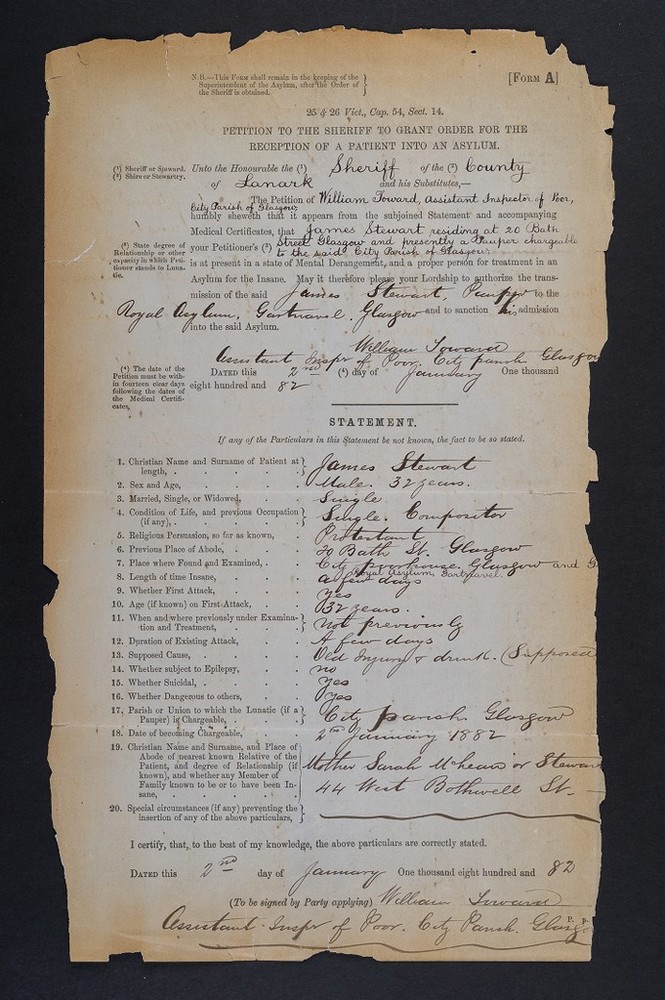 N.B.—This Form shall remain in the keeping of the
Superintendent of the Asylum, after the Order of
the Sheriff is obtained.
[Form A]
25 & 26 Vict., Cap. 54, Sect. 14.
PETITION TO THE SHERIFF TO GRANT ORDER FOR THE
RECEPTION OF A PATIENT INTO AN ASYLUM.
(¹) Sheriff or Steward.
(²) Shire or Stewartry.
Unto the Honourable the (¹) Sheriff of the (²) County
of Lanark and his Substitutes,—
The Petition of William Toward, Assistant Inspector of Poor,
City Parish of Glasgow
humbly sheweth that it appears from the subjoined Statement and accompanying
Medical Certificates, that James Stewart residing at 20 Bath
(³) State degree of
Relationship or other
capacity in which Peti-
tioner stands to Luna-
tic.
your Petitioner's (³) Street Glasgow and presently a Pauper chargeable
to the said City Parish of Glasgow
is at present in a state of Mental Derangement, and a proper person for treatment in an
Asylum for the Insane. May it therefore please your Lordship to authorize the trans-
mission of the said James Stewart, Pauper to the
Royal Asylum, Gartnavel, Glasgow and to sanction his admission
into the said Asylum.
William Toward
Assistant Inspr of Poor, City parish Glasgow
(⁴) The date of the
Petition must be with-
in fourteen clear days
following the dates of
the Medical Certifi-
cates,
Dated this 2nd (⁴) day of January One thousand
eight hundred and 82
STATEMENT.
If any of the Particulars in this Statement be not known, the fact to be so stated.
1. Christian Name and Surname of Patient at
length, James Stewart
2. Sex and Age, Male. 32 years.
3. Married, Single, or Widowed, Single
4. Condition of Life, and previous Occupation
(if any), Single. Compositor
5. Religious Persuasion, so far as known, Protestant
6. Previous Place of Abode, 20 Bath St. Glasgow
7. Place where Found and Examined, City poorhouse. Glasgow and G
Royal Asylum, Gartnavel.
8. Length of time Insane, a few days
9. Whether First Attack, Yes
10. Age (if known) on First Attack, 32 years.
11. When and where previously under Examina-
tion and Treatment, Not previously
12. Duration of Existing Attack, A few days
13. Supposed Cause, Old Injury & drink. (Supposed
14. Whether subject to Epilepsy, no
15. Whether Suicidal, Yes
16. Whether Dangerous to others, Yes
17. Parish or Union to which the Lunatic (if a
Pauper) is Chargeable, City parish Glasgow
18. Date of becoming Chargeable, 2nd January 1882
19. Christian Name and Surname, and Place of
Abode of nearest known Relative of the
Patient, and degree of Relationship (if
known), and whether any Member of
Family known to be or to have been In-
sane,
Mother Sarah or Stewar
44 West Bothwell St.
20. Special circumstances (if any) preventing the
insertion of any of the above particulars,
I certify, that, to the best of my knowledge, the above particulars are correctly stated.
Dated this 2nd day of January One thousand eight hundred and 82
(To be signed by Party applying) William Toward
Assistant Inspr of Poor. City Parish. Glasg